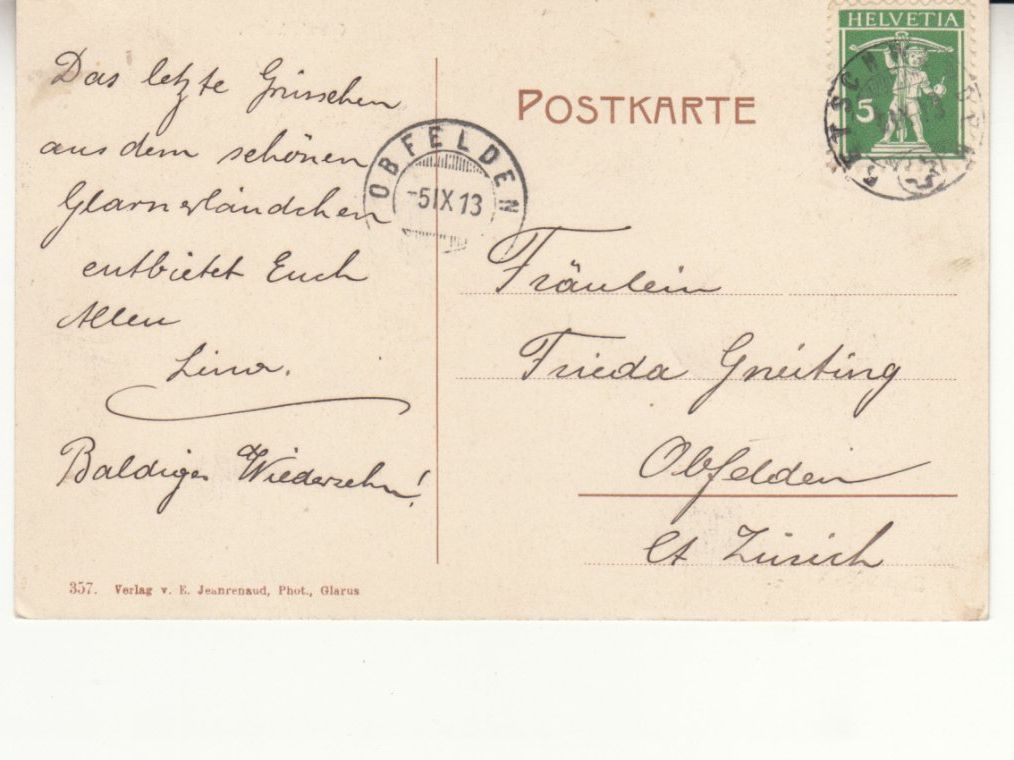 Das letzte Grüsschen
aus dem schönen
Glarnerländchen
entbietet Euch
Allen
Lina.
Baldiges Wiedersehn!
357. Verlag v. E. Jeanrenaud, Phot., Glarus
OBFELDEN
-5IX13
POSTKARTE
HELVETIA
5
Fräulein
Frieda Gneiting
Obfelden
Ct Zürich